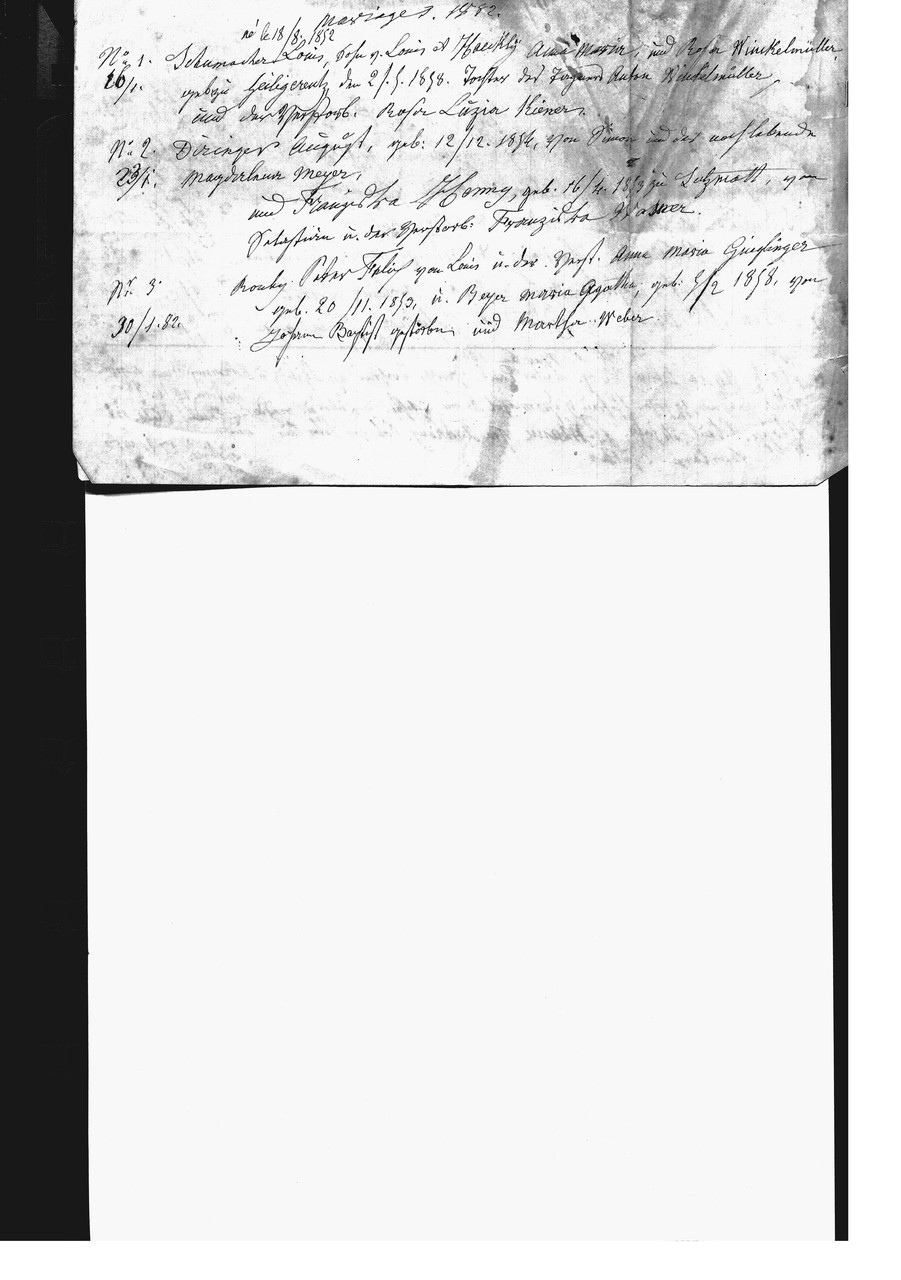 Mariages. 1882.
né le 18/8. 1852
No. 1. Schumacher Louis, Sohn v. Louis et Haeckly Anna Maria, und Rosa Winckelmüller,
16/1. geb. zu Heiligkreutz den 2/.5. 1858. Tochter des Anton Winckelmüller
und der Verstorb. Rosa Luzia Kiener.
No. 2. Diringer August, geb: 12/12. 1854, von Simon und der noch lebende
23/1. Magdalena Meyer,
und Franziska Henny, geb. 16/4. 1853 zu Sulzmatt, von
Sebastian u. der Verstorb: Franziska Wasmer.
No. 3. Rouby Peter Felix von Louis u. der Verst. Anna Maria Gueglinger
geb. 20/11. 1853, u. Beyer Maria Agatha, geb: 5/2 1858, von
30/1. 82. Johann Baptist gestorben und Martha Weber.